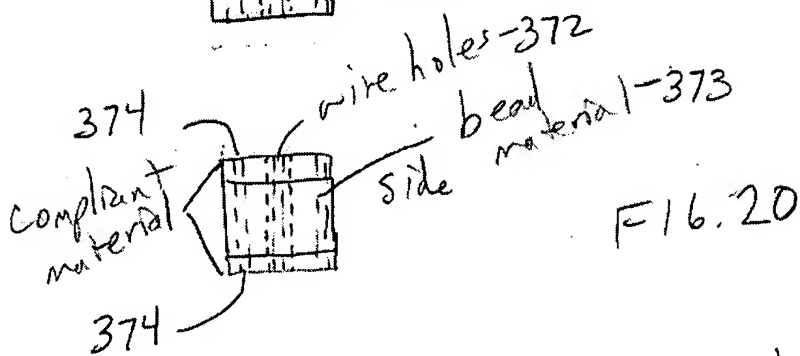 374
wire holes-372
bead
material-373
side
compliant
material
374
FIG.20